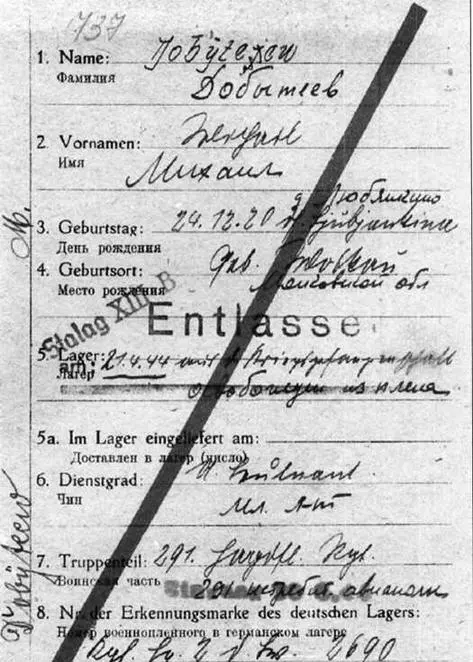 737
1. Name: Dobytejew
Фамилия Добытеев
2. Vornamen: Michael
Имя Михаил
д. Люблянкино
3. Geburtstag: 24.12.20 d. Ljubjankina
День рождения
4. Geburtsort: Geb. Moskau
Место рождения Московской обл
Stalag XIII B
Entlassen
5. Lager: 21.4.44 aus d. Kriegsgefangenschaft
am:
лагерь освобожден из плена
5a. Im Lager eingeliefert am:
Доставлен в лагер (число)
6. Dienstgrad: U. Leutnant
Чин мл. л-т
7. Truppenteil: 291. Jagdfl. Rgt.
Воинская часть 291 истребит. авиаполк
8. Nr. der Erkennungsmarke des deutschen Lagers:
Номер военнопленного в германском лагере
2690
Dobytejew M.